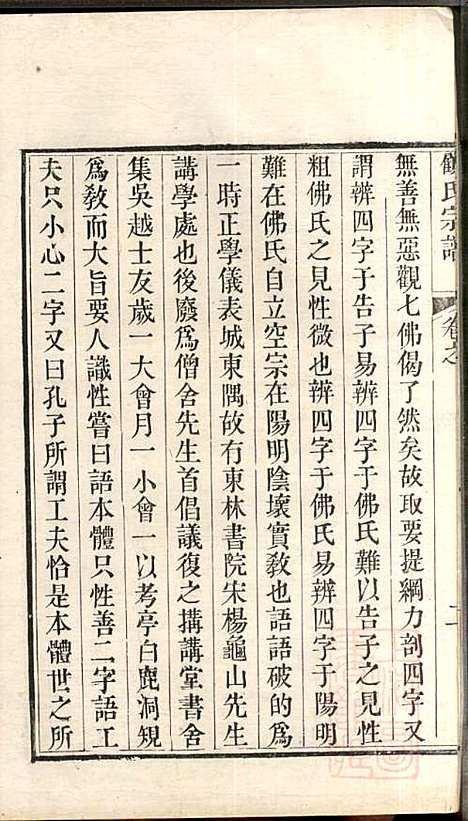 顧氏宗譜
無善無惡觀七佛偈了然矣故取要提綱力剖四字又
謂辨四字于告子易辨四字于佛氏難以告子之見性
粗佛氏之見性微也辨四字于佛氏易辨四字于陽明
難在佛氏自立空宗在陽明陰壞實敎也語語破的爲
一時正學儀表城東隅故有東林書院宋楊龜山先生
講學處也後廢爲僧舍先生首倡議復之搆講堂書舍
集吳越士友歲一大會月一小會一以考亭白鹿洞規
爲敎而大旨要人識性嘗曰語本體只性善二字語工
夫只小心二字又曰孔子所謂工夫恰是本體世之所